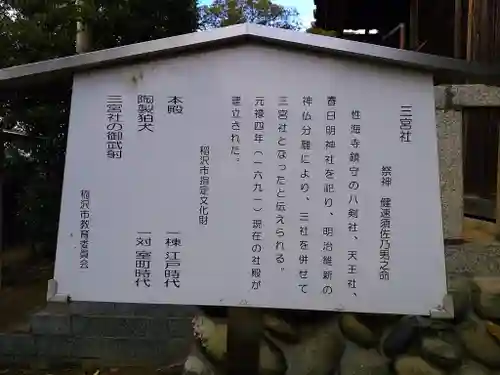 三宮社
祭神　健速須佐乃男之命
性海寺鎮守の八剣社、天王社、
春日明神社を祀り、明治維新の
神仏分離により、三社を併せて
三宮社となったと伝えられる。
元禄四年（一六九一）現在の社殿が
建立された。
稲沢市指定文化財
本殿　一棟　江戸時代
陶製狛犬　一対　室町時代
三宮社の御武射
稲沢市教育委員会